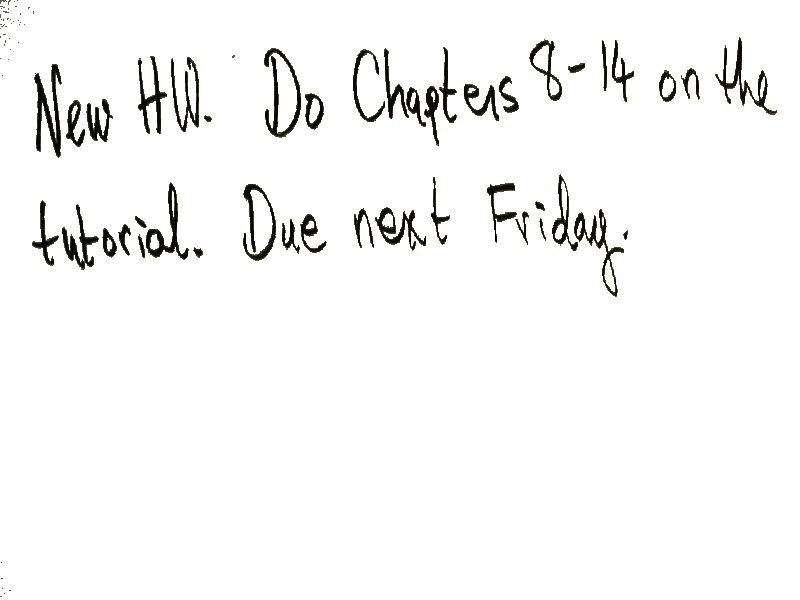 New HW. Do Chapters 8-14 on the
tutorial. Due next Friday.